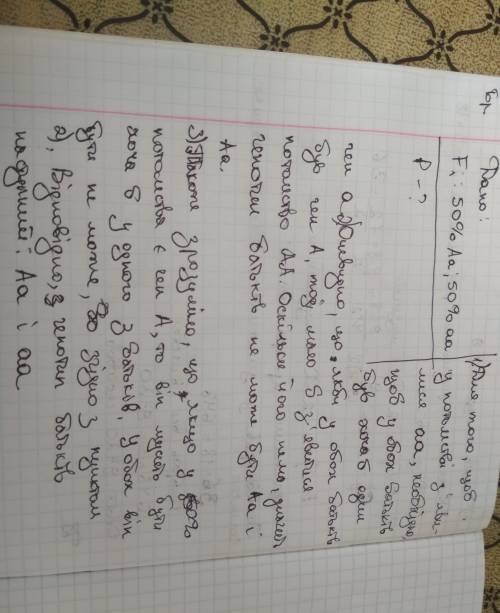 Дано:
F₁: 50% Aa; 50% aa
P - ?
1) Для того, щоб
у потомстві з'яви-
лися aa, необхідно,
щоб у обох батьків
був хоча б один
ген a 2) Очевидно, що якби у обох батьків
був ген A, тоді мало б з'явитися
потомство AA. Оскільки його нема, значить
генотип батьків не може бути Aa і
Aa.
3) Також зрозуміло, що якщо у 50%
потомства є ген A, то він мусить бути
хоча б у одного з батьків. У обох він
бути не може, бо згідно з пунктом
2). Відповідно, генотип батьків
наступний: Aa і aa